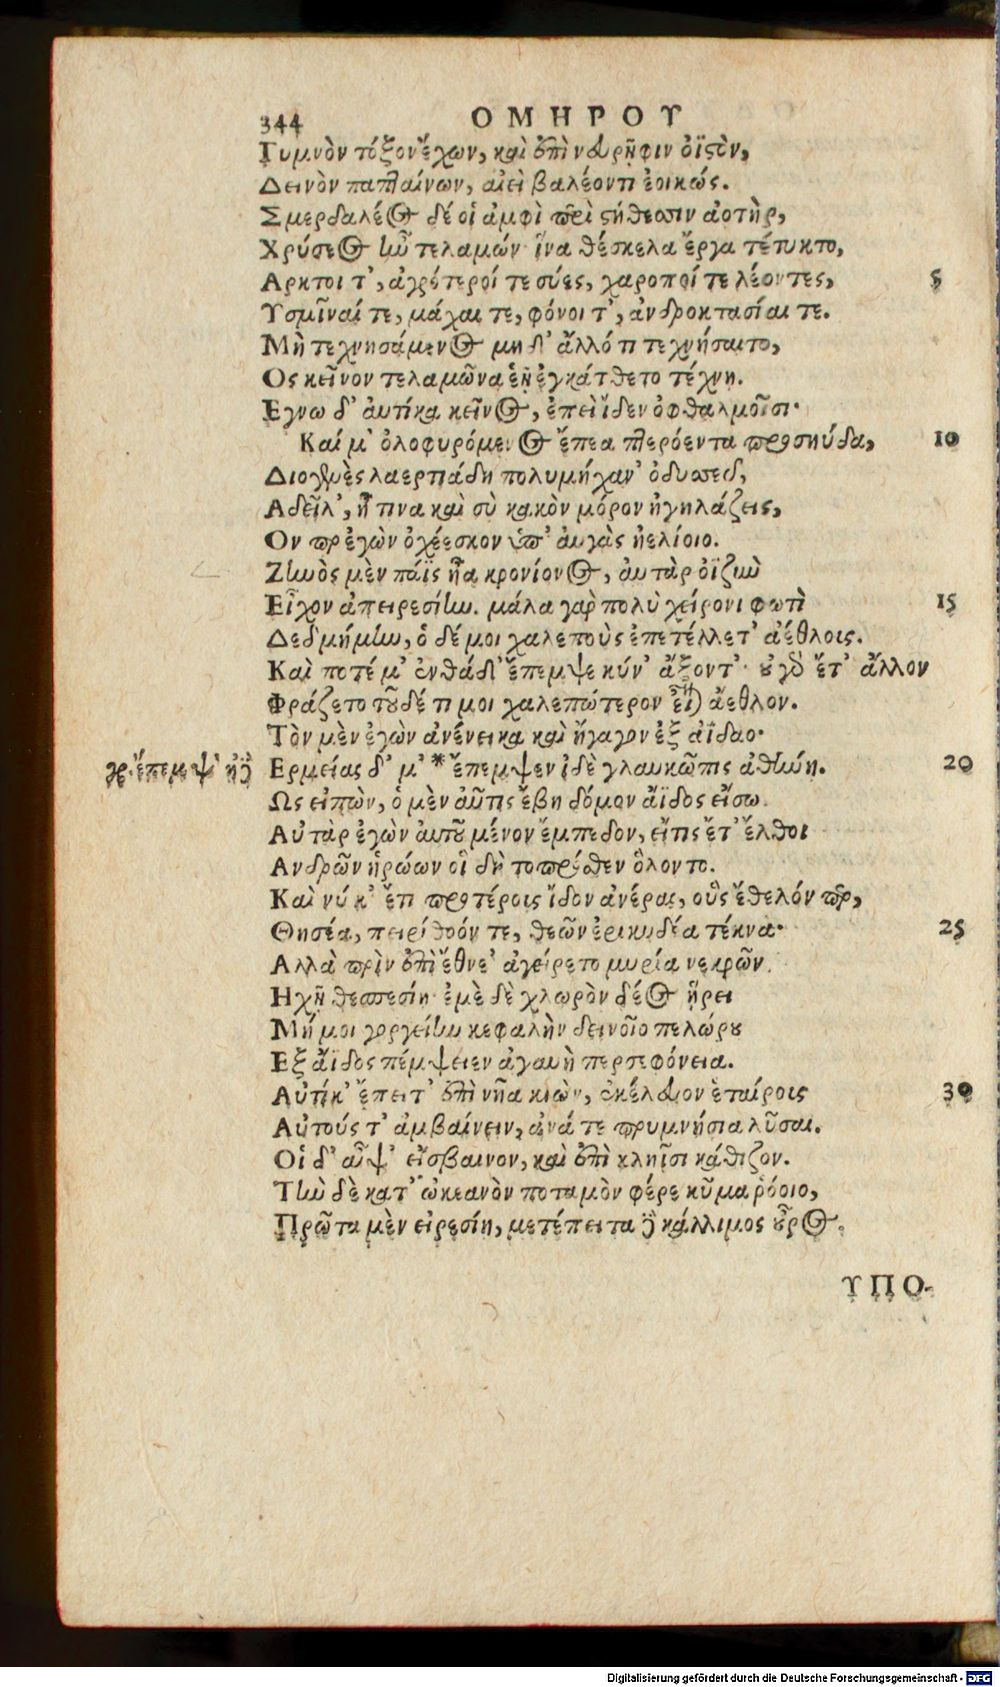 344 ΟΜΗΡΟΥ
Γυμνὸν τόξον ἔχων, καὶ ἐπὶ νευρῆφιν ὀϊστὸν,
Δεινὸν παπταίνων, αἰεὶ βαλέοντι ἐοικώς.
Σμερδαλέος δέ οἱ ἀμφὶ περὶ στήθεσσιν ἀορτὴρ,
Χρύσεος ἦν τελαμών· ἵνα θέσκελα ἔργα τέτυκτο,
Αρκτοι τ', ἀγρότεροί τε σύες, χαροποί τε λέοντες, 5
Υσμῖναί τε, μάχαι τε, φόνοι τ', ἀνδροκτασίαι τε.
Μὴ τεχνησάμενος μηδ' ἄλλό τι τεχνήσαιτο,
Ος κεῖνον τελαμῶνα ἑῇ ἐγκάτθετο τέχνῃ.
Εγνω δ' αὐτίκα κεῖνος, ἐπεὶ ἴδεν ὀφθαλμοῖσι·
Καί μ' ὀλοφυρόμενος ἔπεα πτερόεντα προσηύδα, 10
Διογενὲς λαερτιάδη πολυμήχαν' ὀδυσσεῦ,
Α δεῖλ', ἦ τινα καὶ σὺ κακὸν μόρον ἡγηλάζεις,
Ον περ ἐγὼν ὀχέεσκον ὑπ' αὐγὰς ἠελίοιο.
Ζηνὸς μὲν πάϊς ἦα κρονίονος, αὐτὰρ ὀϊζὺν
Εἶχον ἀπειρεσίην. μάλα γὰρ πολὺ χείρονι φωτὶ 15
Δεδμήμην, ὁ δέ μοι χαλεποὺς ἐπετέλλετ' ἀέθλοις.
Καὶ ποτέ μ' ἐνθάδ' ἔπεμψε κύν' ἄξοντ'· οὐ γὸ ἔτ' ἄλλον
Φράζετο τοῦδέ τι μοι χαλεπώτερον εἶναι ἄεθλον.
Τὸν μὲν ἐγὼν ἀνένεικα καὶ ἤγαγον ἐξ ἀΐδαο·
γρ. ἔπεμψ' ἠδὲ Ερμείας δ' μ' * ἔπεμψεν ἰδὲ γλαυκῶπις ἀθήνη. 20
Ως εἰπὼν, ὁ μὲν αὖτις ἔβη δόμον ἄϊδος εἴσω.
Αὐτὰρ ἐγὼν αὐτοῦ μένον ἔμπεδον, εἴ τις ἔτ' ἔλθοι
Ανδρῶν ἡρώων οἳ δὴ τοπρόσθεν ὄλοντο.
Καὶ νύ κ' ἔτι προτέροις ἴδον ἀνέρας, οὓς ἔθελόν περ,
Θησέα, πειρίθοόν τε, θεῶν ἐρικυδέα τέκνα· 25
Αλλὰ πρὶν ἐπὶ ἔθνε' ἀγείρετο μυρία νεκρῶν.
Ηχῇ θεσπεσίῃ· ἐμὲ δὲ χλωρὸν δέος ᾕρει
Μή μοι γοργείην κεφαλὴν δεινοῖο πελώρου
Εξ ἄϊδος πέμψειεν ἀγαυὴ περσεφόνεια.
Αὐτίκ' ἔπειτ' ἐπὶ νῆα κιὼν, ἐκέλευον ἑταίροις 30
Αὐτούς τ' ἀμβαίνειν, ἀνά τε πρυμνήσια λῦσαι.
Οἱ δ' αἶψ' εἴσβαινον, καὶ ἐπὶ κληῖσι κάθιζον.
Τὴν δὲ κατ' ὠκεανὸν ποταμὸν φέρε κῦμα ῥόοιο,
Πρῶτα μὲν εἰρεσίη, μετέπειτα δὲ κάλλιμος οὖρος.
ΥΠΟ-
Digitalisierung gefördert durch die Deutsche Forschungsgemeinschaft - DFG